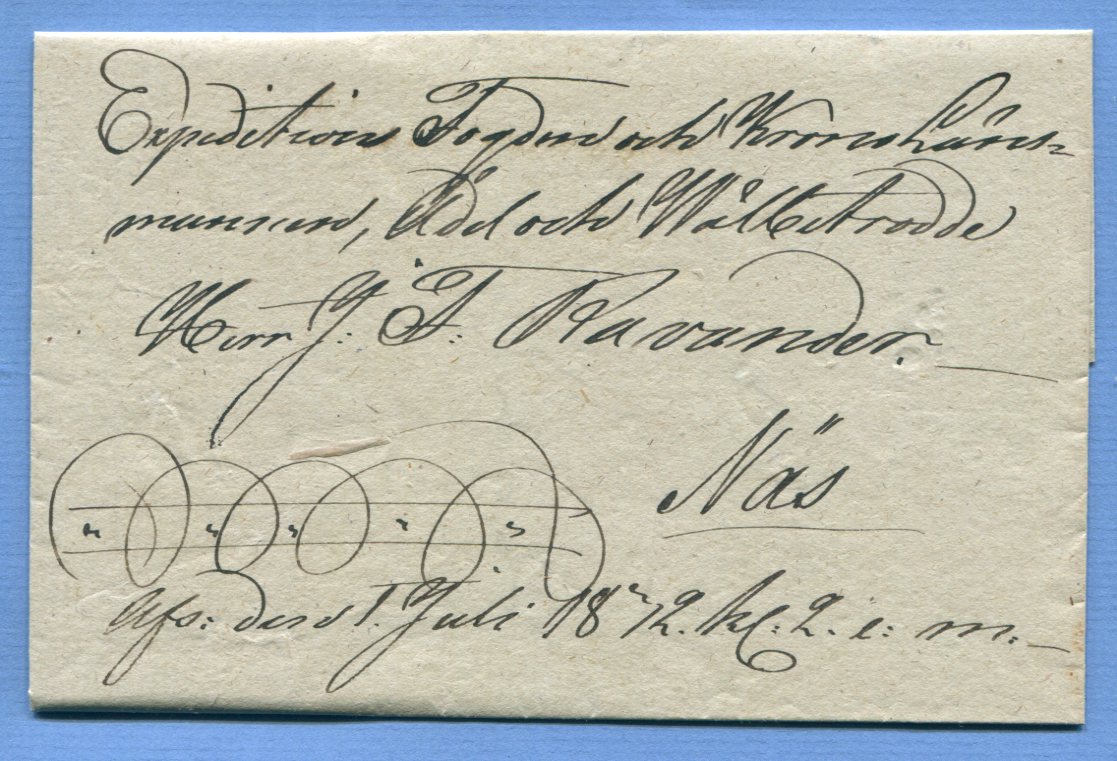 Expeditions Fogden och Krono Läns-
mannen, Ädel och Wälbetrodde
Herr J: F: Ravander.
Näs
Afs: den 1. Juli 1872. kl: 2. e: m: